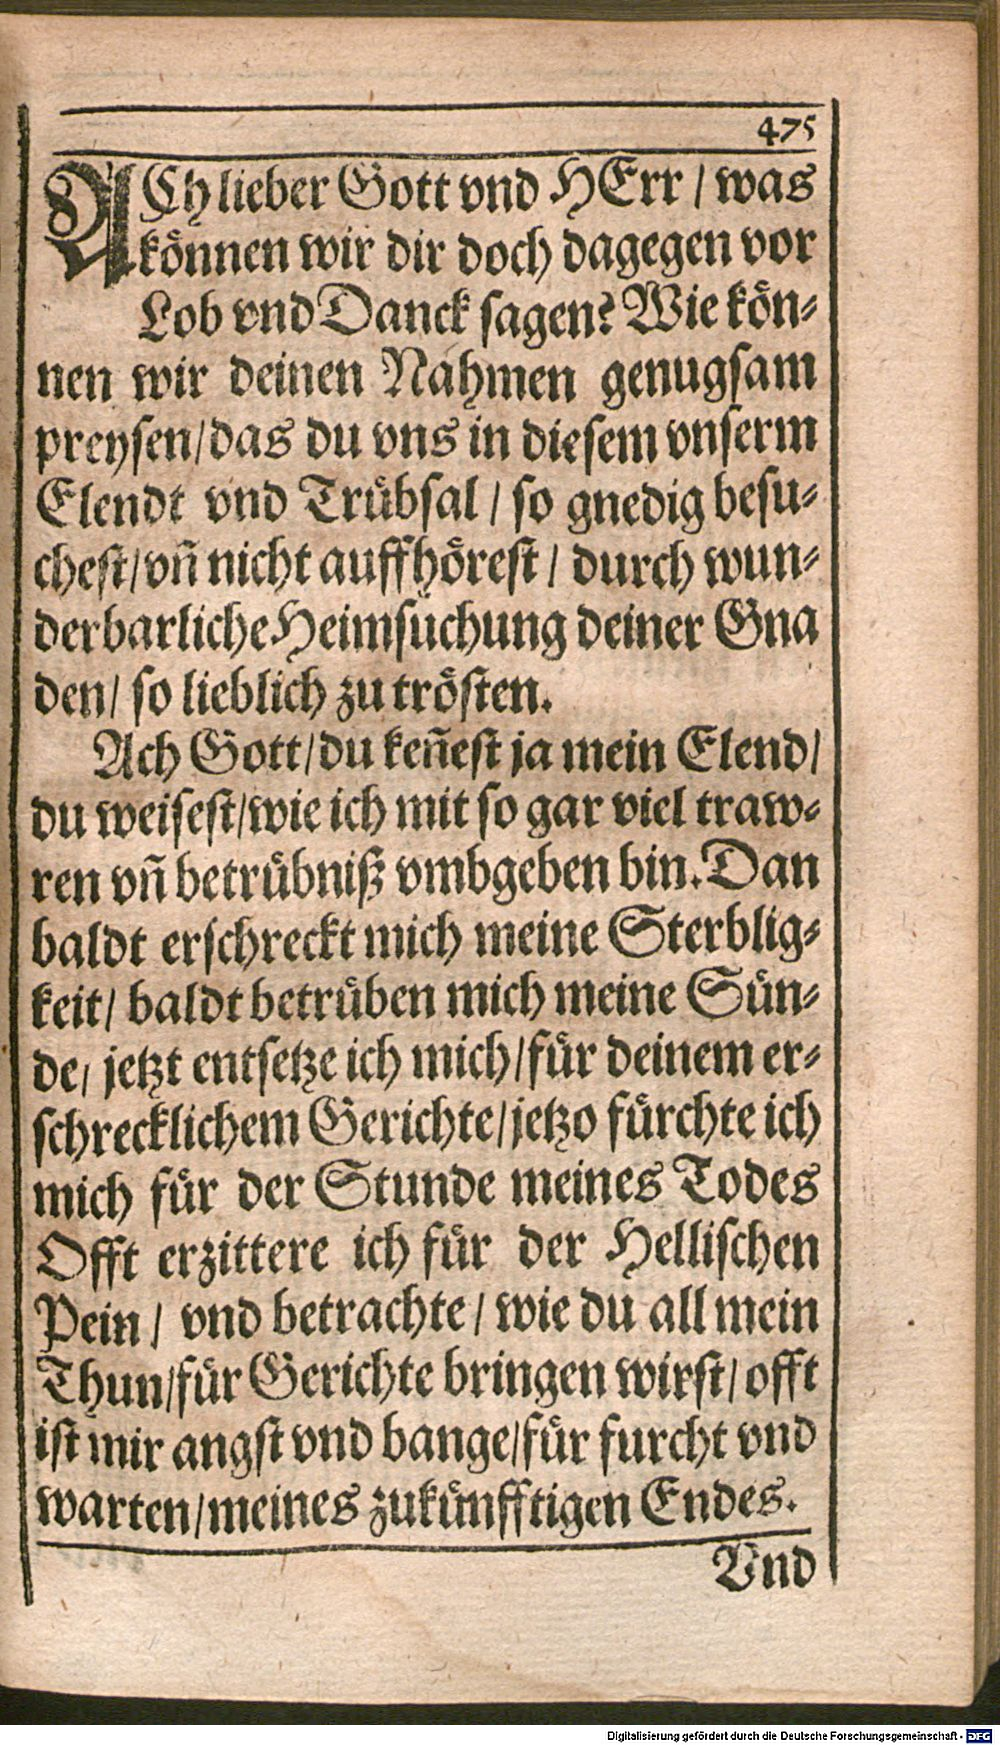 475
ACh lieber Gott vnd HErr / was
können wir dir doch dagegen vor
Lob vnd Danck sagen? Wie kön-
nen wir deinen Nahmen genugsam
preysen/das du vns in diesem vnserm
Elendt vnd Trübsal / so gnedig besu-
chest/vñ nicht auffhörest / durch wun-
derbarliche Heimsuchung deiner Gna
den/ so lieblich zu trösten.
Ach Gott/du keñest ja mein Elend/
du weisest/wie ich mit so gar viel traw-
ren vñ betrübniß vmbgeben bin. Dan
baldt erschreckt mich meine Sterblig-
keit/ baldt betrüben mich meine Sün-
de/ jetzt entsetze ich mich/für deinem er-
schrecklichem Gerichte/jetzo fürchte ich
mich für der Stunde meines Todes
Offt erzittere ich für der Hellischen
Pein / vnd betrachte / wie du all mein
Thun/für Gerichte bringen wirst/ offt
ist mir angst vnd bange/für furcht vnd
warten/meines zukünfftigen Endes.
Vnd
Digitalisierung gefördert durch die Deutsche Forschungsgemeinschaft - DFG